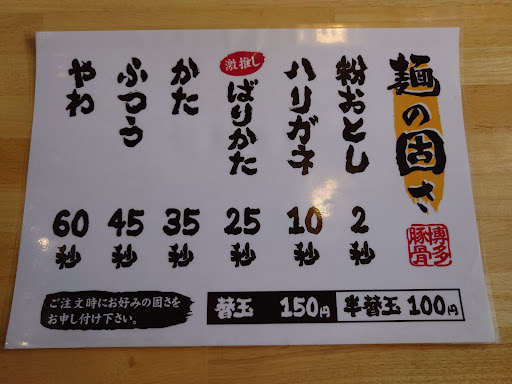 麺の固さ
博多
豚骨
粉おとし 2秒
ハリガネ 10秒
激推し
ばりかた 25秒
かた 35秒
ふつう 45秒
やわ 60秒
ご注文時にお好みの固さを
お申し付け下さい。
替玉 150円
半替玉 100円